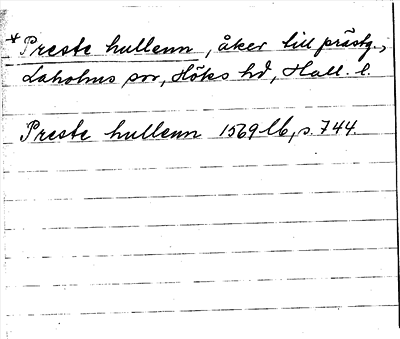 * Preste hullenn, åker till prästg.,
Laholms sn, Höks hd, Hall. l.
Preste hullenn 1569 lb, s. 744.